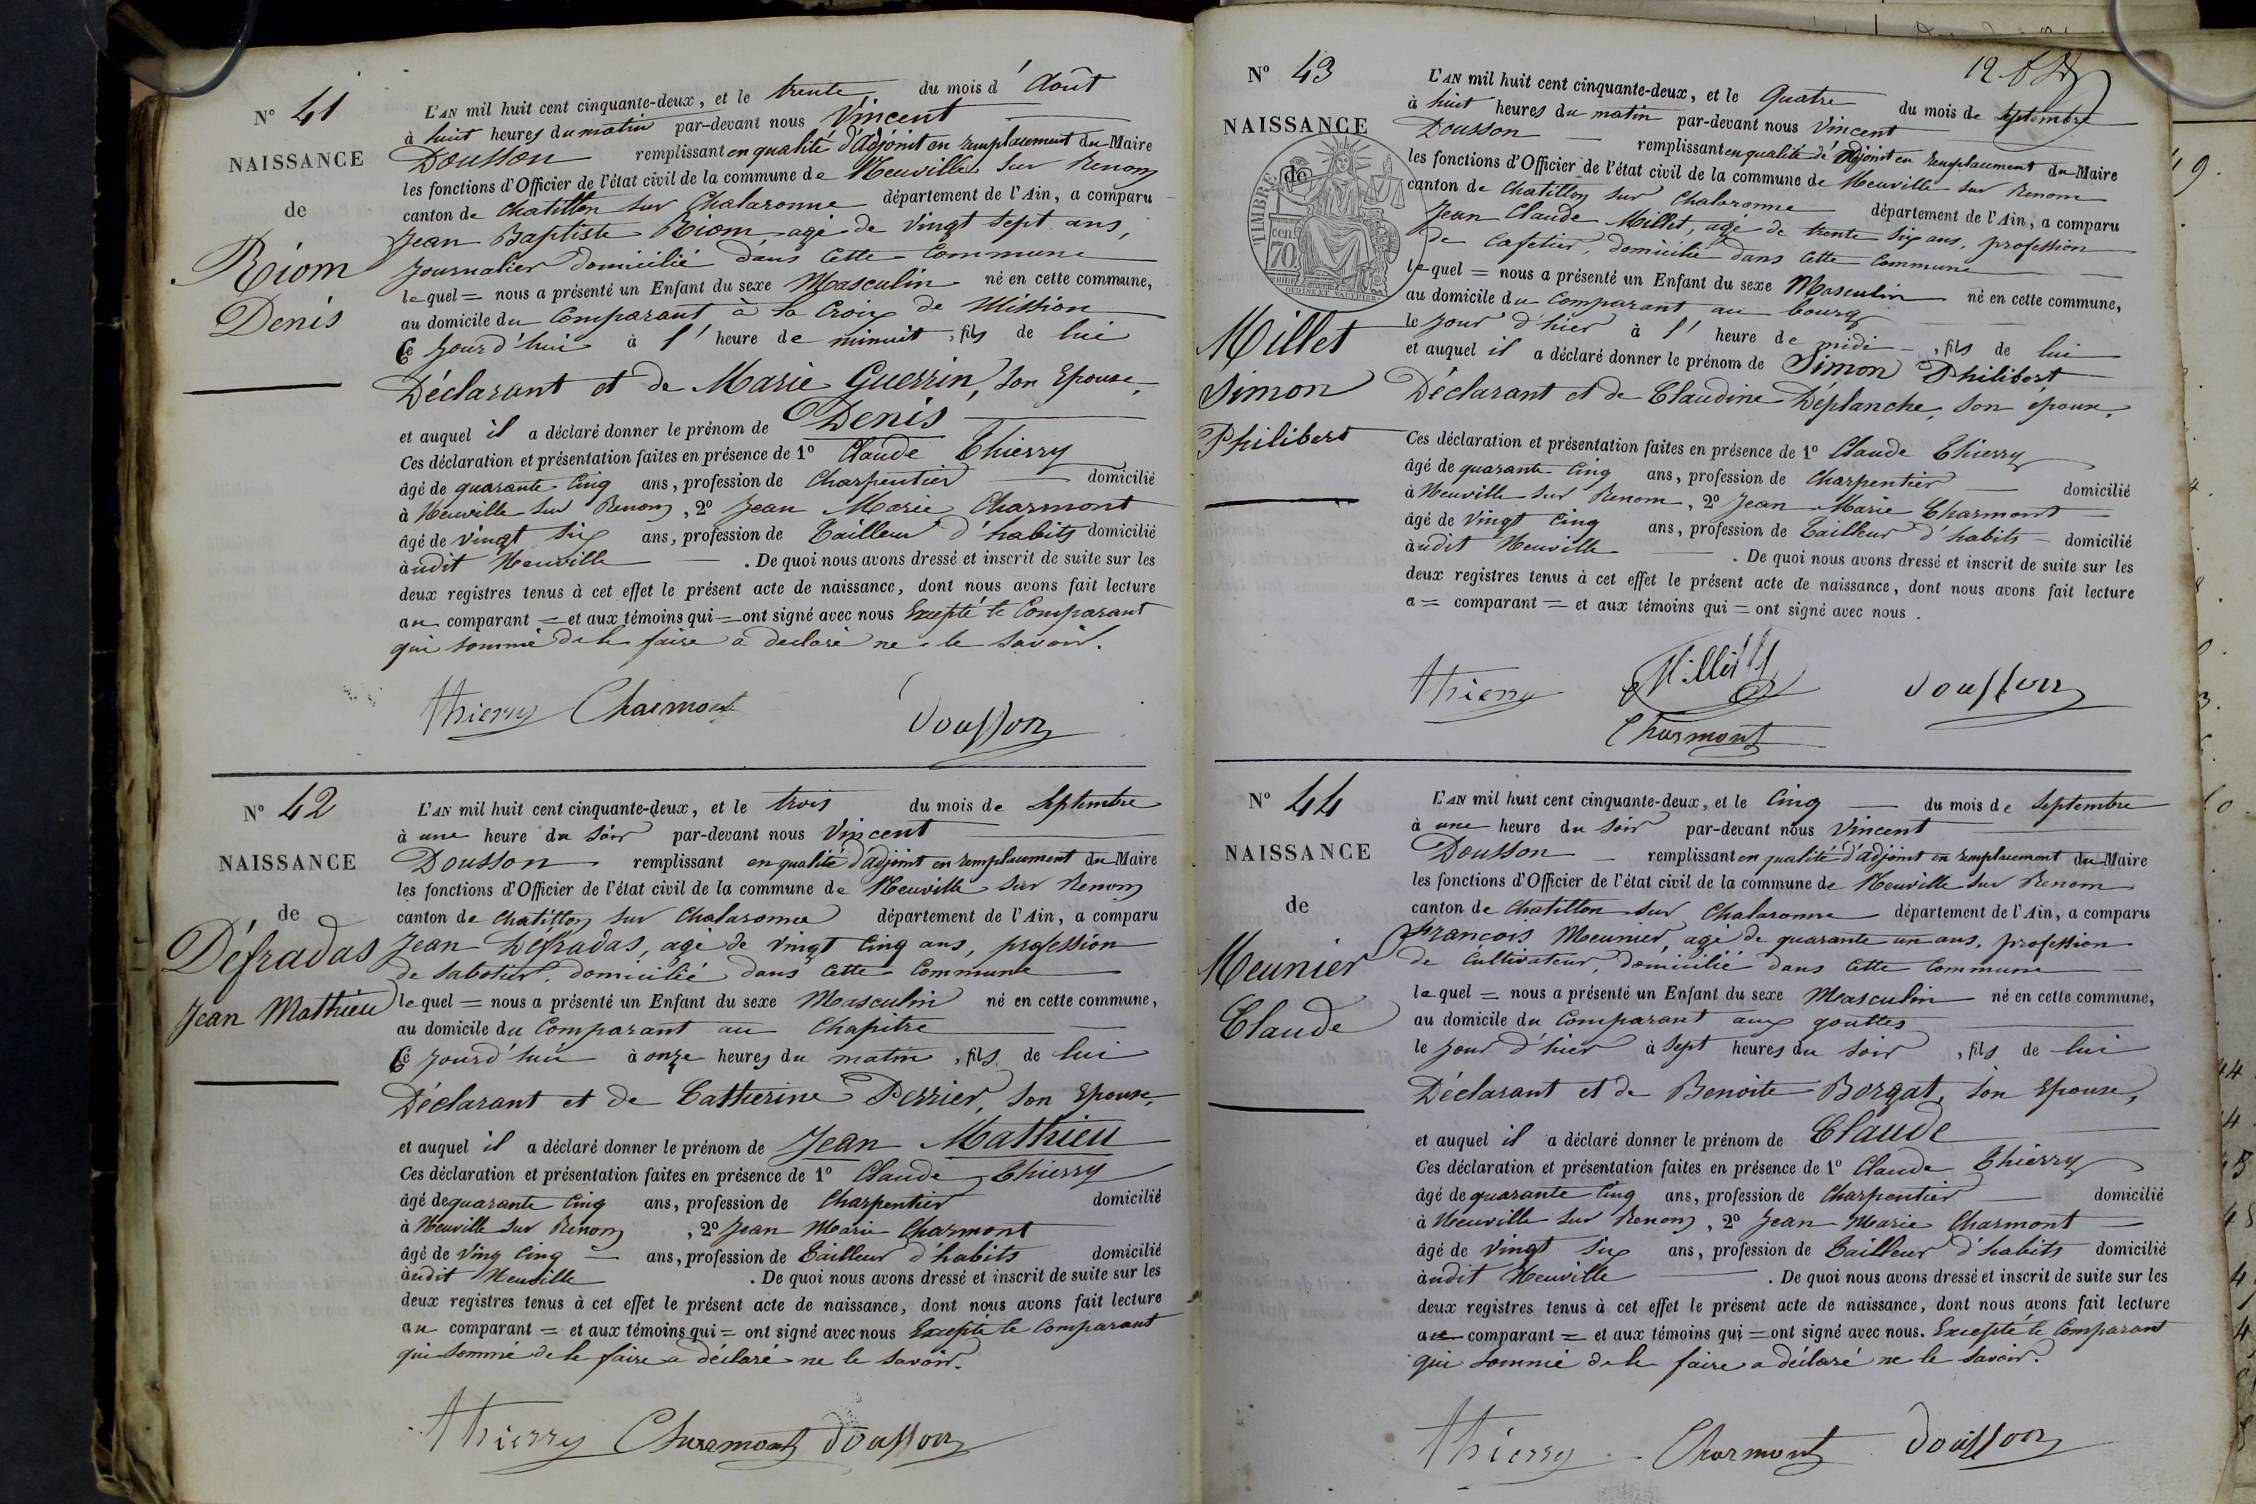 N° 41
NAISSANCE
de
Riom
Denis
L'AN mil huit cent cinquante-deux, et le trente du mois d'Août
à huit heures du matin par-devant nous Vincent
Dousson remplissant en qualité d'adjoint en remplacement du Maire
les fonctions d'Officier de l'état civil de la commune de Neuville sur Renom
canton de Chatillon sur Chalaronne département de l'Ain, a comparu
Jean Baptiste Riom agé de vingt sept ans,
Journalier domicilié dans cette commune
lequel = nous a présenté un Enfant du sexe Masculin né en cette commune,
au domicile du Comparant à la Croix de Mission
Ce jourd'hui à l'heure de minuit, fils de lui
Déclarant et de Marie Guerrin, son Epouse,
et auquel il a déclaré donner le prénom de Denis
Ces déclaration et présentation faites en présence de 1° Claude Thierry
âgé de quarante cinq ans, profession de Charpentier domicilié
à Neuville sur Renom, 2° Jean Marie Charmont
âgé de vingt six ans, profession de Tailleur d'habits domicilié
àudit Neuville. De quoi nous avons dressé et inscrit de suite sur les
deux registres tenus à cet effet le présent acte de naissance, dont nous avons fait lecture
au comparant = et aux témoins qui = ont signé avec nous Excepté le Comparant
qui sommé de le faire a declaré ne le savoir.
Thierry Charmont Dousson
N° 42
NAISSANCE
de
Défradas
Jean Mathieu
L'AN mil huit cent cinquante-deux, et le trois du mois de Septembre
à une heure du soir par-devant nous Vincent
Dousson remplissant en qualité d'adjoint en remplacement du Maire
les fonctions d'Officier de l'état civil de la commune de Neuville sur Renom
canton de Chatillon sur Chalaronne département de l'Ain, a comparu
Jean Défradas, agé de vingt cinq ans, profession
de sabotier, domicilié dans cette Commune
lequel = nous a présenté un Enfant du sexe Masculin né en cette commune,
au domicile du Comparant au Chapitre
Ce jourd'hui à onze heures du matin, fils de lui
Déclarant et de Catherine Perrier, son Epouse,
et auquel il a déclaré donner le prénom de Jean Mathieu
Ces déclaration et présentation faites en présence de 1° Claude Thierry
âgé de quarante cinq ans, profession de Charpentier domicilié
à Neuville sur Renom, 2° Jean Marie Charmont
âgé de Ving cinq ans, profession de Tailleur d'habits domicilié
àudit Neuville. De quoi nous avons dressé et inscrit de suite sur les
deux registres tenus à cet effet le présent acte de naissance, dont nous avons fait lecture
au comparant = et aux témoins qui = ont signé avec nous Excepté le Comparant
qui sommé de le faire a déclaré ne le savoir.
Thierry Charemont Dousson
12
N° 43
NAISSANCE
de
TIMBRE
cen.
70
Millet
Simon
Philibert
L'AN mil huit cent cinquante-deux, et le Quatre du mois de Septembre
à huit heures du matin par-devant nous Vincent
Dousson remplissant en qualité d'adjoint en remplacement du Maire
les fonctions d'Officier de l'état civil de la commune de Neuville sur Renom
canton de Chatillon sur Chalaronne département de l'Ain, a comparu
Jean Claude Millet, agé de trente six ans, profession
de Cafetier, domicilié dans cette commune
lequel = nous a présenté un Enfant du sexe Masculin né en cette commune,
au domicile du Comparant au bourg
le jour d'hier à l'heure de midi, fils de lui
et auquel il a déclaré donner le prénom de Simon Philibert
Déclarant et de Claudine Déplanche, son épouse,
Ces déclaration et présentation faites en présence de 1° Claude Thierry
âgé de quarante cinq ans, profession de Charpentier domicilié
à Neuville sur Renom, 2° Jean Marie Charmont
âgé de vingt cinq ans, profession de Tailleur d'habits domicilié
àudit Neuville. De quoi nous avons dressé et inscrit de suite sur les
deux registres tenus à cet effet le présent acte de naissance, dont nous avons fait lecture
a = comparant = et aux témoins qui = ont signé avec nous.
Thierry Millet Dousson
Charmont
N° 44
NAISSANCE
de
Meunier
Claude
L'AN mil huit cent cinquante-deux, et le Cinq du mois de Septembre
à une heure du soir par-devant nous Vincent
Dousson remplissant en qualité d'adjoint en remplacement du Maire
les fonctions d'Officier de l'état civil de la commune de Neuville sur Renom
canton de Chatillon sur Chalaronne département de l'Ain, a comparu
François Meunier, agé de quarante un ans, profession
de Cultivateur, domicilié dans cette commune
lequel = nous a présenté un Enfant du sexe Masculin né en cette commune,
au domicile du Comparant aux gouttes
le jour d'hier à sept heures du soir, fils de lui
Déclarant et de Benoite Borgat, son Epouse,
et auquel il a déclaré donner le prénom de Claude
Ces déclaration et présentation faites en présence de 1° Claude Thierry
âgé de quarante cinq ans, profession de Charpentier domicilié
à Neuville sur Renom, 2° Jean Marie Charmont
âgé de vingt six ans, profession de Tailleur d'habits domicilié
àudit Neuville. De quoi nous avons dressé et inscrit de suite sur les
deux registres tenus à cet effet le présent acte de naissance, dont nous avons fait lecture
au comparant = et aux témoins qui = ont signé avec nous. Excepté le Comparant
qui sommé de le faire a déclaré ne le savoir.
Thierry Charmont Dousson